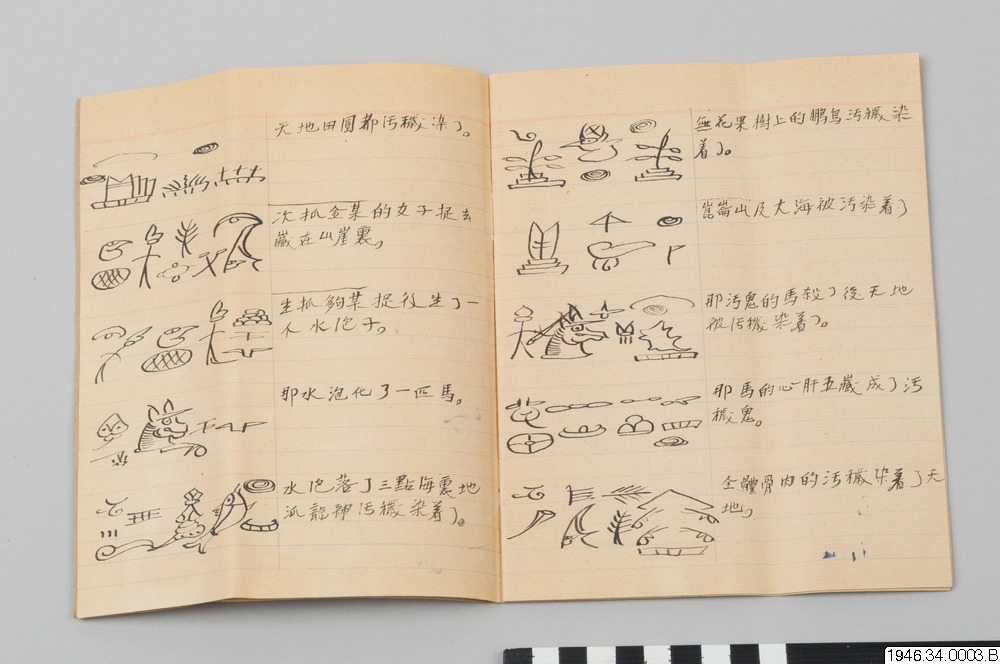 天地田圓都汚穢染了。
次抓金某的女子捉去
藏在山崖裏。
生抓夠某捉後生了一
个水泡子。
那水泡化了一匹馬。
水泡落了三點海裏地
派龍神汚穢染着了。
無花果樹上的鵬鳥汚穢染
着了。
崑崙山及大海被汚染着了
那汚鬼的馬殺了後天地
被汚穢染着了。
那馬的心肝五藏成了汚
穢鬼。
全體骨肉的汚穢染着了天
地。
1946.34.0003.B